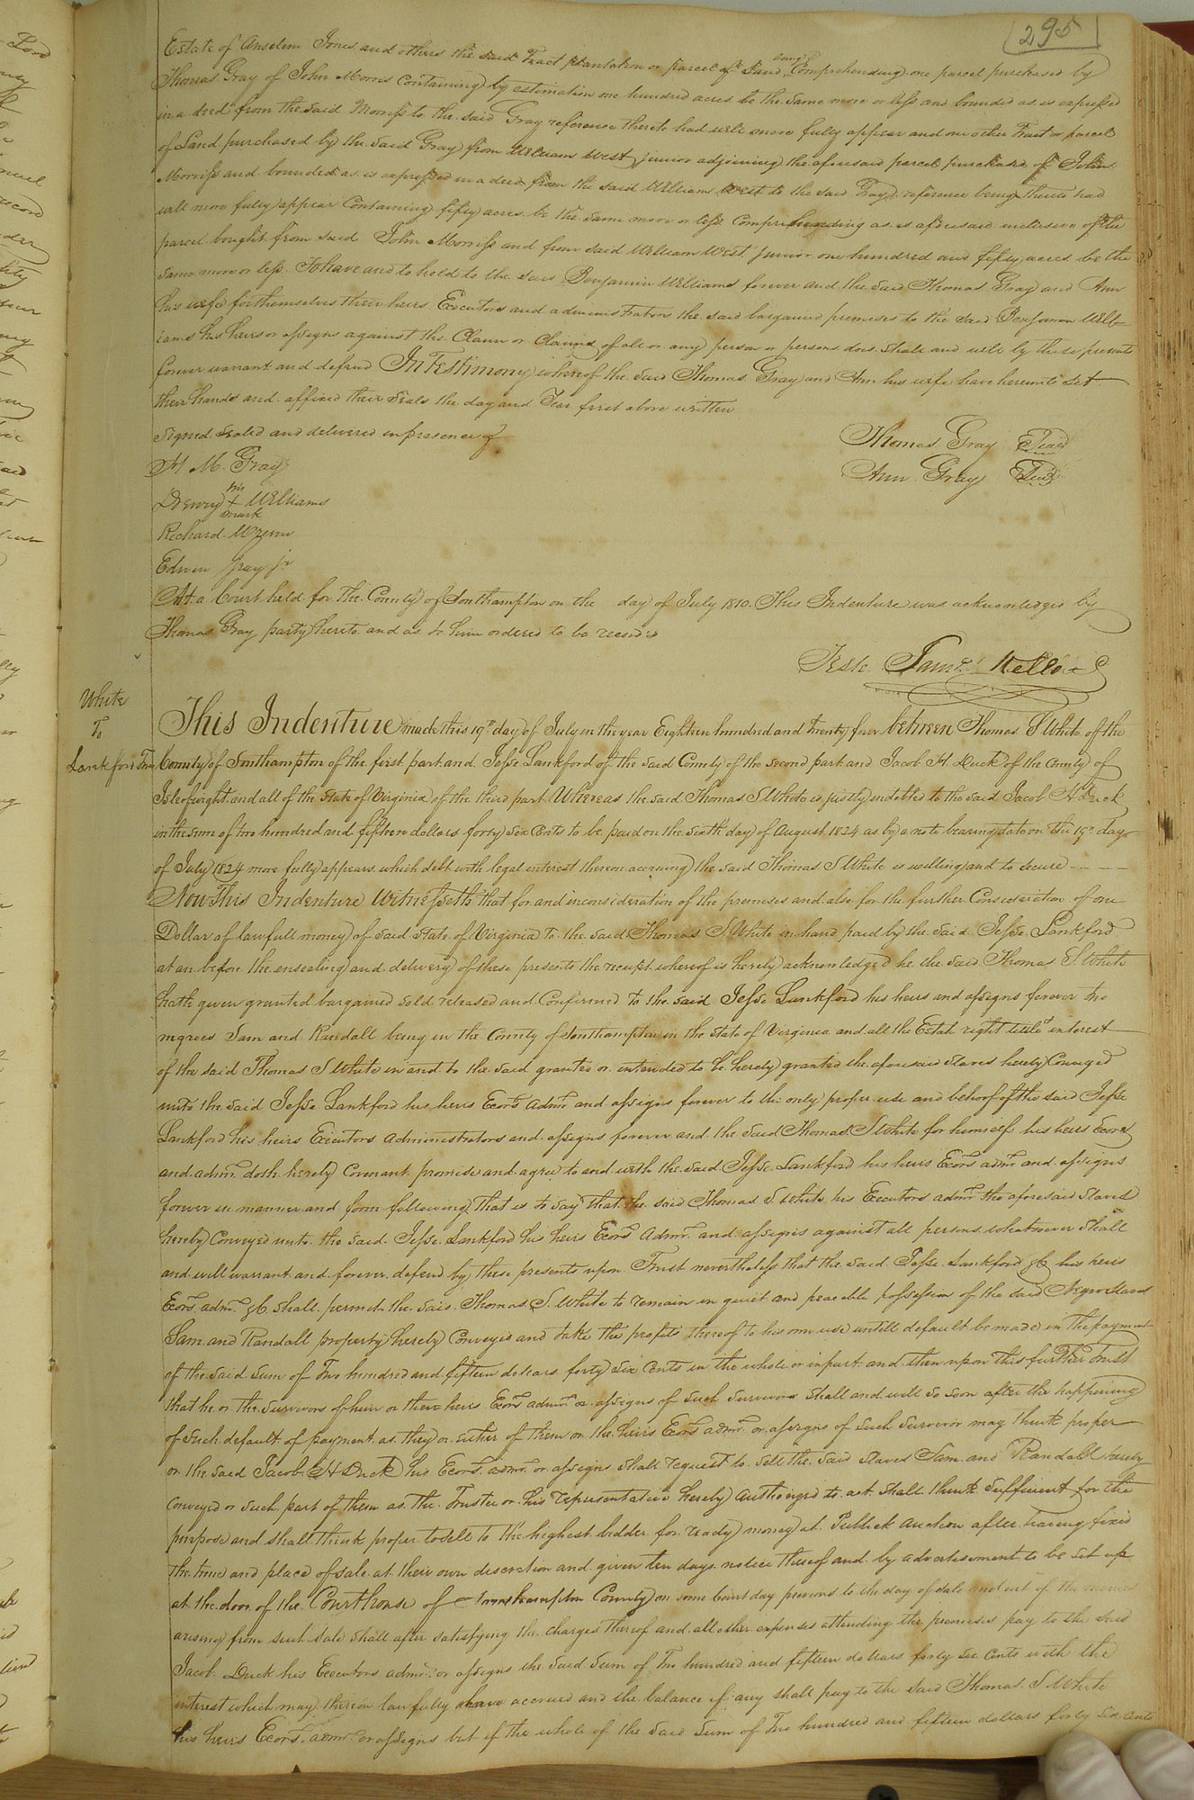 295
Estate of Anselm Jones and others the said Tract plantation or parcel of Land being Comprehending one parcel purchased by
Thomas Gray of John Morris Containing by estimation one hundred acres be the same more or less and bounded as is expressed
in a deed from the said Morriss to the said Gray reference thereto had will more fully appear and one other Tract or parcel
of Land purchased by the said Gray from William West junior adjoining the aforesaid parcel purchased of John
Morriss and bounded as is expressed in a deed from the said William West to the said Gray reference being thereto had
will more fully appear Containing fifty acres be the same more or less Comprehending as is aforesaid inclusive of the
parcel bought from said John Morriss and from said William West junior one hundred and fifty acres be the
same more or less To have and to hold to the said Benjamin Williams forever and the said Thomas Gray and Ann
his wife for themselves their heirs Executors and administrators the said bargained premises to the said Benjamin Will-
iams his heirs or assigns against the Claim or Claims of all or any person or persons does shall and will by these presents
forever warrant and defend In Testimony whereof the said Thomas Gray and Ann his wife have hereunto set
their hands and affixed their seals the day and Year first above written
Signed Sealed and delivered in presence of
Thomas Gray Seal
H. M. Gray
Ann Gray Seal
Drewry his + mark Williams
Richard Wrenn
Edwin Gray jr
At a Court held for the County of Southampton on the day of July 1810. This Indenture was acknowledged by
Thomas Gray party hereto and as to him ordered to be recorded
Teste. Saml. Kello
White
To
Lankford Tr
This Indenture made this 19th day of July in the year Eighteen hundred and twenty four between Thomas S White of the
County of Southampton of the first part and Jesse Lankford of the said County of the second part and Jacob H. Duck of the County of
Isle of wight and all of the State of Virginia of the third part Whereas the said Thomas S White is justly indebted to the said Jacob H Duck
in the sum of two hundred and fifteen dollars forty six Cents to be paid on the sixth day of August 1824 as by a note bearing date on the 19th day
of July 1824 more fully appears which debt with legal interest thereon accruing the said Thomas S White is willing and to secure
Now This Indenture Witnesseth that for and in consideration of the premises and also for the further Consideration of one
Dollar of lawfull money of said State of Virginia to the said Thomas S White in hand paid by the said Jesse Lankford
at an before the ensealing and delivery of these presents the receipt whereof is hereby acknowledged he the said Thomas S White
hath given granted bargained sold released and Confirmed to the said Jesse Lankford his heirs and assigns forever two
negroes Sam and Randall being in the County of Southampton in the State of Virginia and all the Estate right title & interest
of the said Thomas S White in and to the said granted or intended to be hereby granted the aforesaid slaves hereby Conveyed
unto the said Jesse Lankford his heirs Exors Admrs and assigns forever to the only proper use and behoof of the said Jesse
Lankford his heirs Executors Administrators and assigns forever and the said Thomas S White for himself his heirs Exors
and admrs doth hereby Covenant promise and agree to and with the said Jesse Lankford his heirs Exors admrs and assigns
forever in manner and form following, that is to say that the said Thomas S White his Executors admrs the aforesaid Slaves
hereby Conveyed unto the said Jesse Lankford his heirs Exors Admrs and assigns against all persons whatsoever shall
and will warrant and forever defend by these presents upon Trust nevertheless that the said Jesse Lankford &c his heirs
Exors admrs &c shall permit the said Thomas S White to remain in quiet and peaceable possession of the said Negro slaves
Sam and Randall property hereby Conveyed and take the profits thereof to his own use untill default be made in the payment
of the said Sum of Two hundred and fifteen dollars forty Six Cents in the whole or in part and then upon this further Trust
that he or the survivor of him or their heirs Exors admrs or assigns of such survivor shall and will so soon after the happening
of such default of payment as they or either of them or the heirs Exors admrs or assigns of such survivor may think proper
or the said Jacob H Duck his Exors admrs or assigns shall request to sell the said slaves Sam and Randall hereby
Conveyed or such part of them as the Trustee or his representative hereby authorized to act shall think sufficient for the
purpose and shall think proper to sell to the highest bidder for ready money at Publick auction after having fixed
the time and place of sale at their own discretion and given ten days notice thereof and by advertisement to be set up
at the door of the Courthouse of Southampton County on some Court day previous to the day of sale and out of the monies
arising from such sale shall after satisfying the charges thereof and all other expenses attending the premises pay to the said
Jacob Duck his Executors admrs or assigns the said sum of Two hundred and fifteen dollars forty six Cents with the
interest which may thereon lawfully have accrued and the balance if any shall pay to the said Thomas S White
his heirs Exors admrs or assigns but if the whole of the said Sum of Two hundred and fifteen dollars forty Six Cents